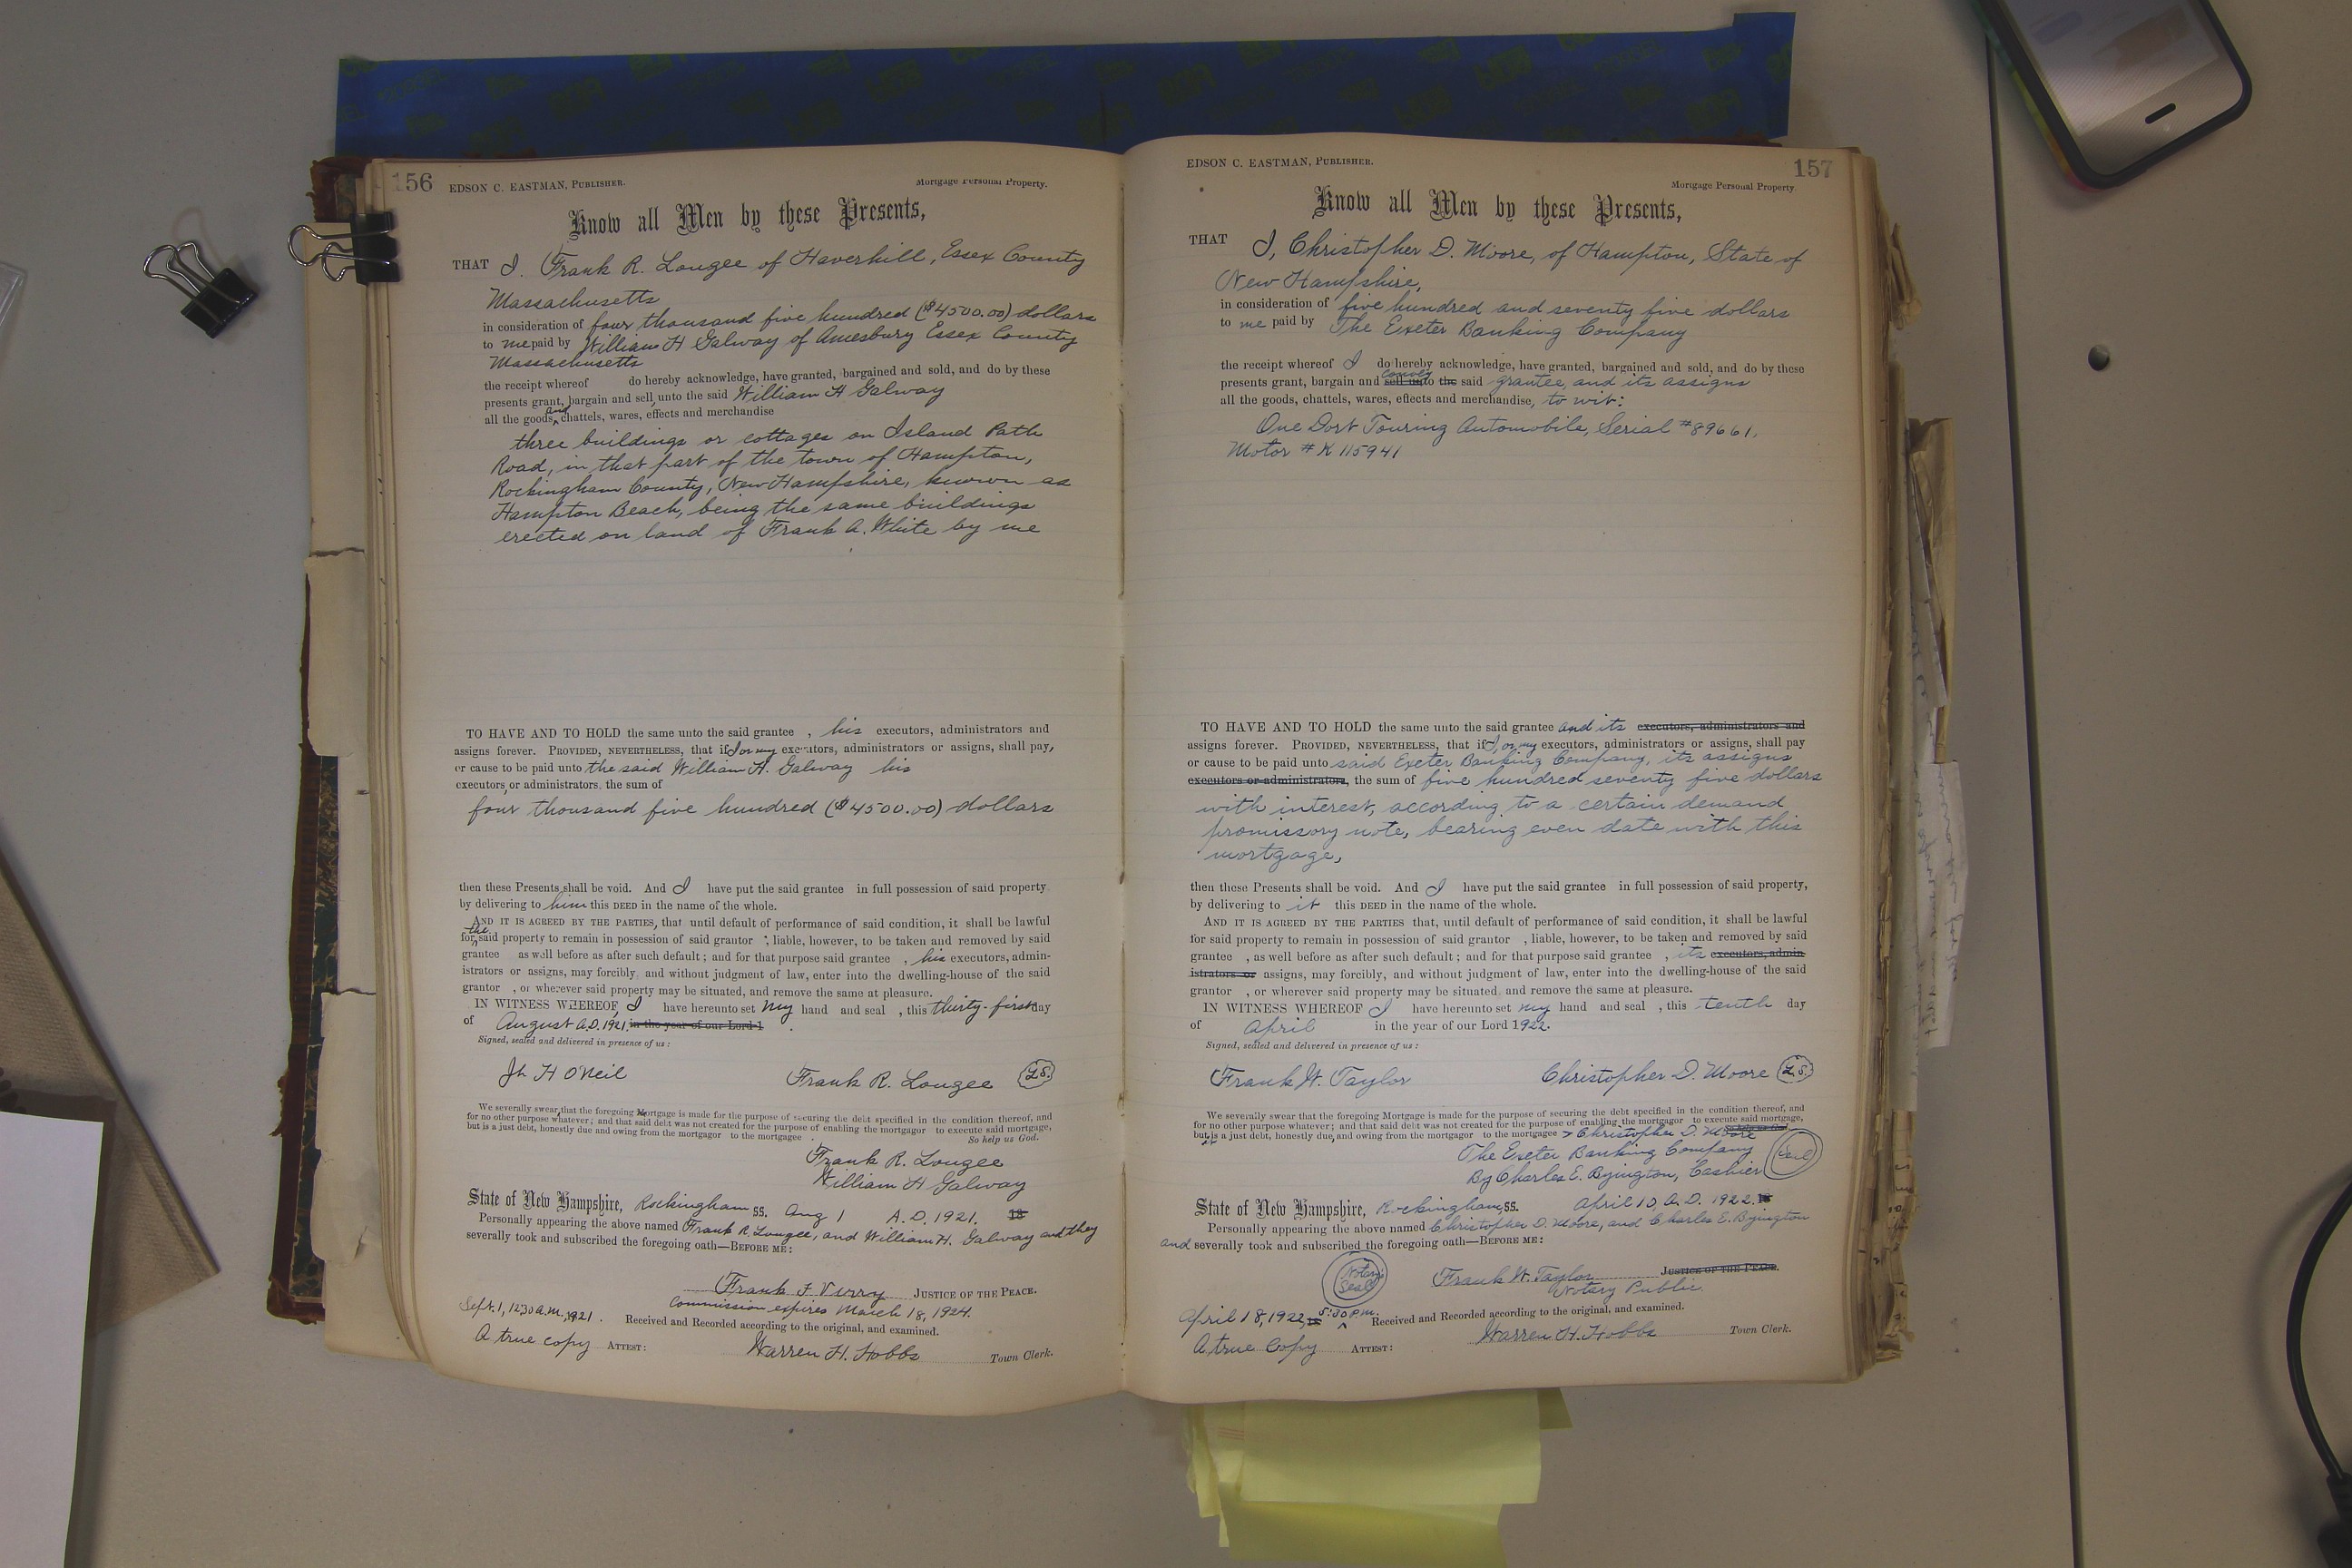 156 EDSON C. EASTMAN, PUBLISHER. Mortgage Personal Property.
Know all Men by these Presents,
THAT I. Frank R. Lougee of Haverhill, Essex County
Massachusetts
in consideration of four thousand five hundred ($4500.00) dollars
to me paid by William H Galway of Amesbury Essex County
Massachusetts
the receipt whereof do hereby acknowledge, have granted, bargained and sold, and do by these
presents grant, bargain and sell, unto the said William H Galway
all the goods, and chattels, wares, effects and merchandise
three buildings or cottages on Island Path
Road, in that part of the town of Hampton,
Rockingham County, New Hampshire, known as
Hampton Beach, being the same buildings
erected on land of Frank A. White by me
TO HAVE AND TO HOLD the same unto the said grantee , his executors, administrators and
assigns forever. PROVIDED, NEVERTHELESS, that if I or my executors, administrators or assigns, shall pay,
or cause to be paid unto the said William H. Galway his
executors, or administrators, the sum of
four thousand five hundred ($4500.00) dollars
then these Presents shall be void. And I have put the said grantee in full possession of said property
by delivering to him this DEED in the name of the whole.
AND IT IS AGREED BY THE PARTIES, that until default of performance of said condition, it shall be lawful
for the said property to remain in possession of said grantor , liable, however, to be taken and removed by said
grantee as well before as after such default; and for that purpose said grantee , his executors, admin-
istrators or assigns, may forcibly, and without judgment of law, enter into the dwelling-house of the said
grantor , or wherever said property may be situated, and remove the same at pleasure.
IN WITNESS WHEREOF, I have hereunto set my hand and seal , this thirty-first day
of August A.D. 1921. in the year of our Lord 1
Signed, sealed and delivered in presence of us:
Jh H O'Neil Frank R. Lougee L.S.
We severally swear, that the foregoing Mortgage is made for the purpose of securing the debt specified in the condition thereof, and
for no other purpose whatever; and that said debt was not created for the purpose of enabling the mortgagor to execute said mortgage,
but is a just debt, honestly due and owing from the mortgagor to the mortgagee So help us God.
Frank R. Lougee
William H Galway
State of New Hampshire, Rockingham SS. Aug 1 A.D. 1921. 18
Personally appearing the above named Frank R. Lougee, and William H. Galway and they
severally took and subscribed the foregoing oath—BEFORE ME:
Frank F Verry JUSTICE OF THE PEACE.
Commission expires March 18, 1924.
Sept. 1, 12:30 a.m., 1921. Received and Recorded according to the original, and examined.
A true copy ATTEST: Warren H. Hobbs Town Clerk.
EDSON C. EASTMAN, PUBLISHER. 157
Mortgage Personal Property.
Know all Men by these Presents,
THAT I, Christopher D. Moore, of Hampton, State of
New Hampshire,
in consideration of five hundred and seventy five dollars
to me paid by The Exeter Banking Company
the receipt whereof I do hereby acknowledge, have granted, bargained and sold, and do by these
presents grant, bargain and sell unto the convey said grantee, and its assigns
all the goods, chattels, wares, effects and merchandise, to wit:
One Dort Touring Automobile, Serial #89661,
Motor # K 115941
TO HAVE AND TO HOLD the same unto the said grantee and its executors, administrators and
assigns forever. PROVIDED, NEVERTHELESS, that if I, or my executors, administrators or assigns, shall pay
or cause to be paid unto said Exeter Banking Company, its assigns
executors or administrators, the sum of five hundred seventy five dollars
with interest, according to a certain demand
promissory note, bearing even date with this
mortgage,
then these Presents shall be void. And I have put the said grantee in full possession of said property,
by delivering to it this DEED in the name of the whole.
AND IT IS AGREED BY THE PARTIES that, until default of performance of said condition, it shall be lawful
for said property to remain in possession of said grantor , liable, however, to be taken and removed by said
grantee , as well before as after such default; and for that purpose said grantee , its executors, admin
istrators or assigns, may forcibly, and without judgment of law, enter into the dwelling-house of the said
grantor , or wherever said property may be situated, and remove the same at pleasure.
IN WITNESS WHEREOF I have hereunto set my hand and seal , this tenth day
of April in the year of our Lord 1922.
Signed, sealed and delivered in presence of us:
Frank W. Taylor Christopher D. Moore L.S.
We severally swear that the foregoing Mortgage is made for the purpose of securing the debt specified in the condition thereof, and
for no other purpose whatever; and that said debt was not created for the purpose of enabling the mortgagor to execute said mortgage,
but it is a just debt, honestly due, and owing from the mortgagor to the mortgagee Christopher D. Moore
The Exeter Banking Company Seal
By Charles E. Byington, Cashier
State of New Hampshire, Rockingham, SS. April 10, A.D. 1922. 18
Personally appearing the above named Christopher D. Moore, and Charles E. Byington
and severally took and subscribed the foregoing oath—BEFORE ME:
Notary Seal Frank W. Taylor JUSTICE OF THE PEACE.
Notary Public
April 18, 1922, 18 5:30 P.M. Received and Recorded according to the original, and examined.
A true Copy ATTEST: Warren H. Hobbs Town Clerk.